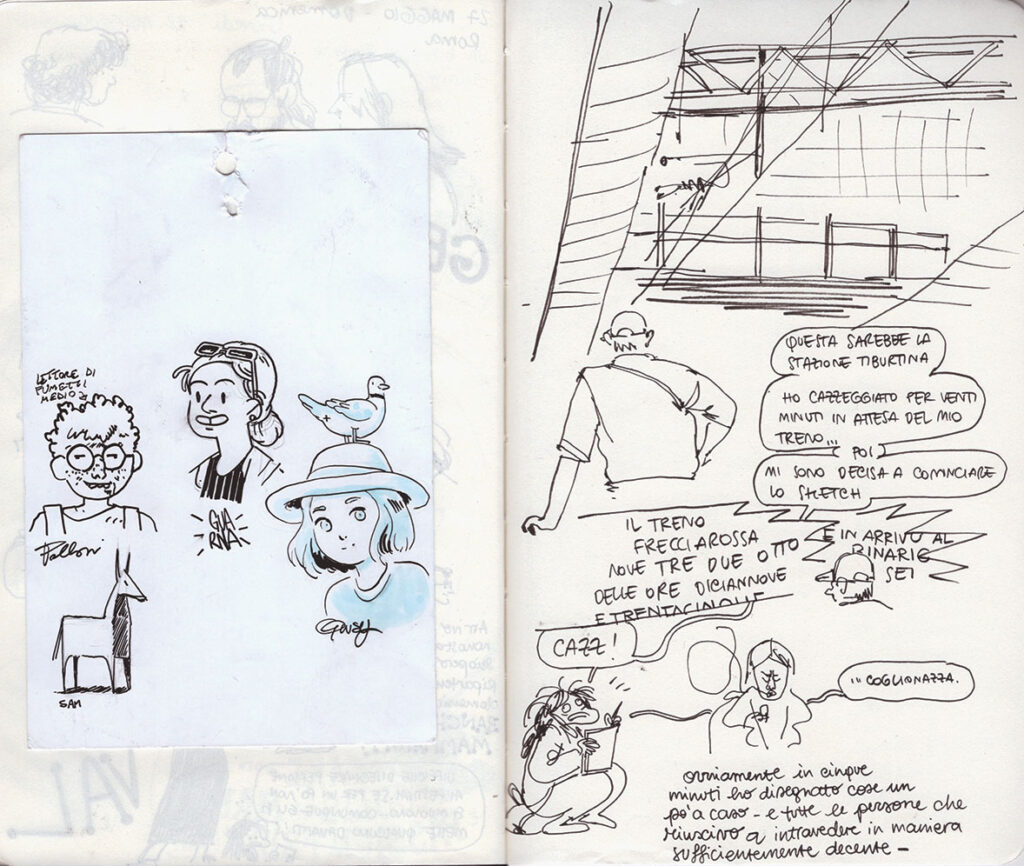 LETTORE DI
FUMETTI
MEDIO
Palloni
GUA
RNA
SAM
QUESTA SAREBBE LA
STAZIONE TIBURTINA
HO CAZZEGGIATO PER VENTI
MINUTI IN ATTESA DEL MIO
TRENO...
POI
MI SONO DECISA A COMINCIARE
LO SKETCH
IL TRENO
FRECCIAROSSA
NOVE TRE DUE OTTO
DELLE ORE DICIANNOVE
E TRENTACINQUE
È IN ARRIVO AL
BINARIO
SEI
CAZZ!
... COGLIONAZZA.
ovviamente in cinque
minuti ho disegnato cose un
po' a caso - e tutte le persone che
riuscivo a intravedere in maniera
sufficientemente decente -